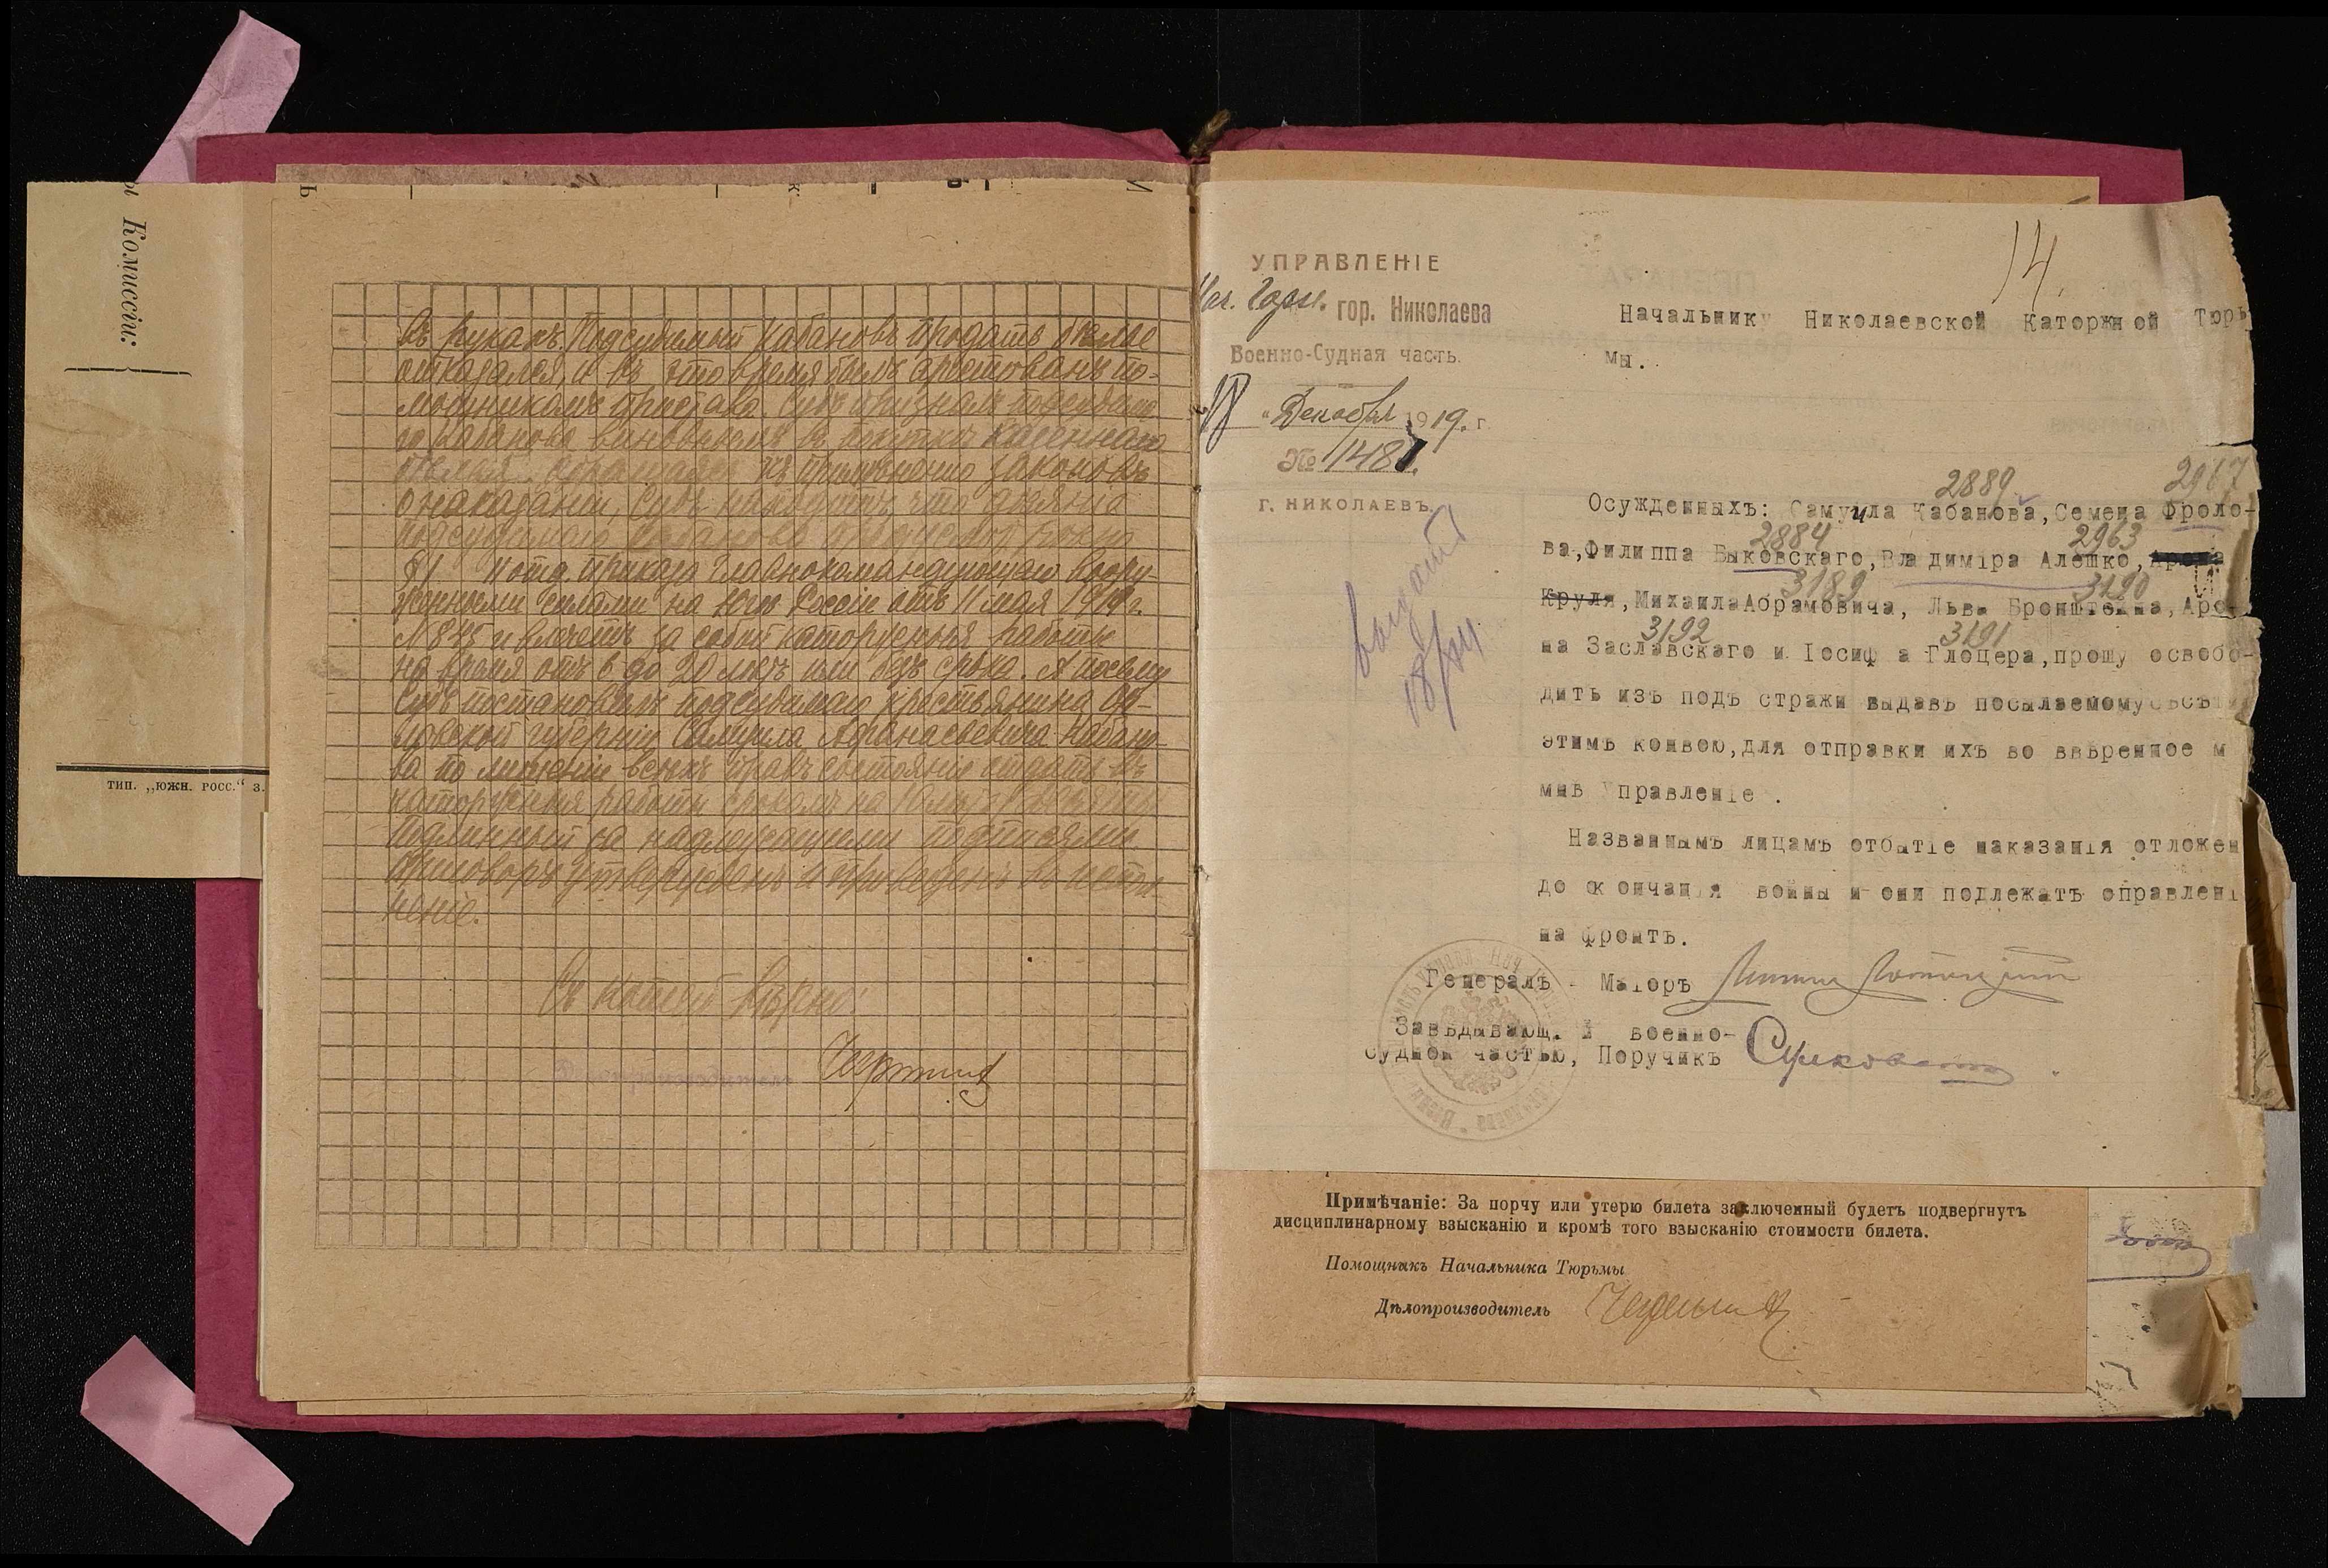 Комиссіи:
тип. „южн. росс.“ з.
въ рукахъ. Подсудимый Кабановъ продать бѣлье
отказался, и въ это время былъ арестованъ по-
мощникомъ пристава. Судъ призналъ подсудимо
го Кабанова виновнымъ въ покупкѣ казеннаго
бѣлья. Обращаясь къ примѣненію законовъ
о наказаніи, Судъ находитъ, что дѣяніе
подсудимаго Кабанова
§ 1 II отд. приказа Главнокомандующаго Воору-
женными силами на Югѣ Россіи отъ 11 мая 1919 г.
и влечетъ за собой каторжныя работы
на время отъ до 20 лѣтъ или безъ срока. А посему
Судъ постановилъ подсудимаго крестьянина Ор-
ловской губерніи Самуила Афанасьевича Кабано-
ва по лишеніи всѣхъ правъ состоянія отдать въ
каторжныя работы срокомъ на
Подлинный за надлежащими подписями.
Приговоръ утвержденъ и приведенъ въ испол-
неніе.
Съ копіей вѣрно:
14.
УПРАВЛЕНІЕ
гор. Николаева
Военно-Судная часть.
18 " Декабря 1919. г.
№ 11481.
г. НИКОЛАЕВЪ.
Начальнику Николаевской Каторжной Тюрь
мы.
2889 2967
Осужденныхъ: Самуила Кабанова, Семена Фроло-
2884 2963
ва, Филиппа Быковскаго, Владиміра Алешко,
3189 3190
Круля, Михаила Абрамовича, Льва Бронштейна, Аро-
3192 3191
на Заславскаго и Іосифа Глоцера, прошу освобо-
дить изъ подъ стражи выдавъ посылаемому съ
этимъ конвою, для отправки ихъ во ввѣренное м
мнѣ Управленіе .
Названнымъ лицамъ отбытіе наказанія отложен
до окончанія войны и они подлежатъ оправлені
на фронтъ.
Генералъ - Маіоръ
Завѣдывающ. военно-
судной частью, Поручикъ
Примѣчаніе: За порчу или утерю билета заключенный будетъ подвергнутъ
дисциплинарному взысканію и кромѣ того взысканію стоимости билета.
Помощникъ Начальника Тюрьмы
Дѣлопроизводитель